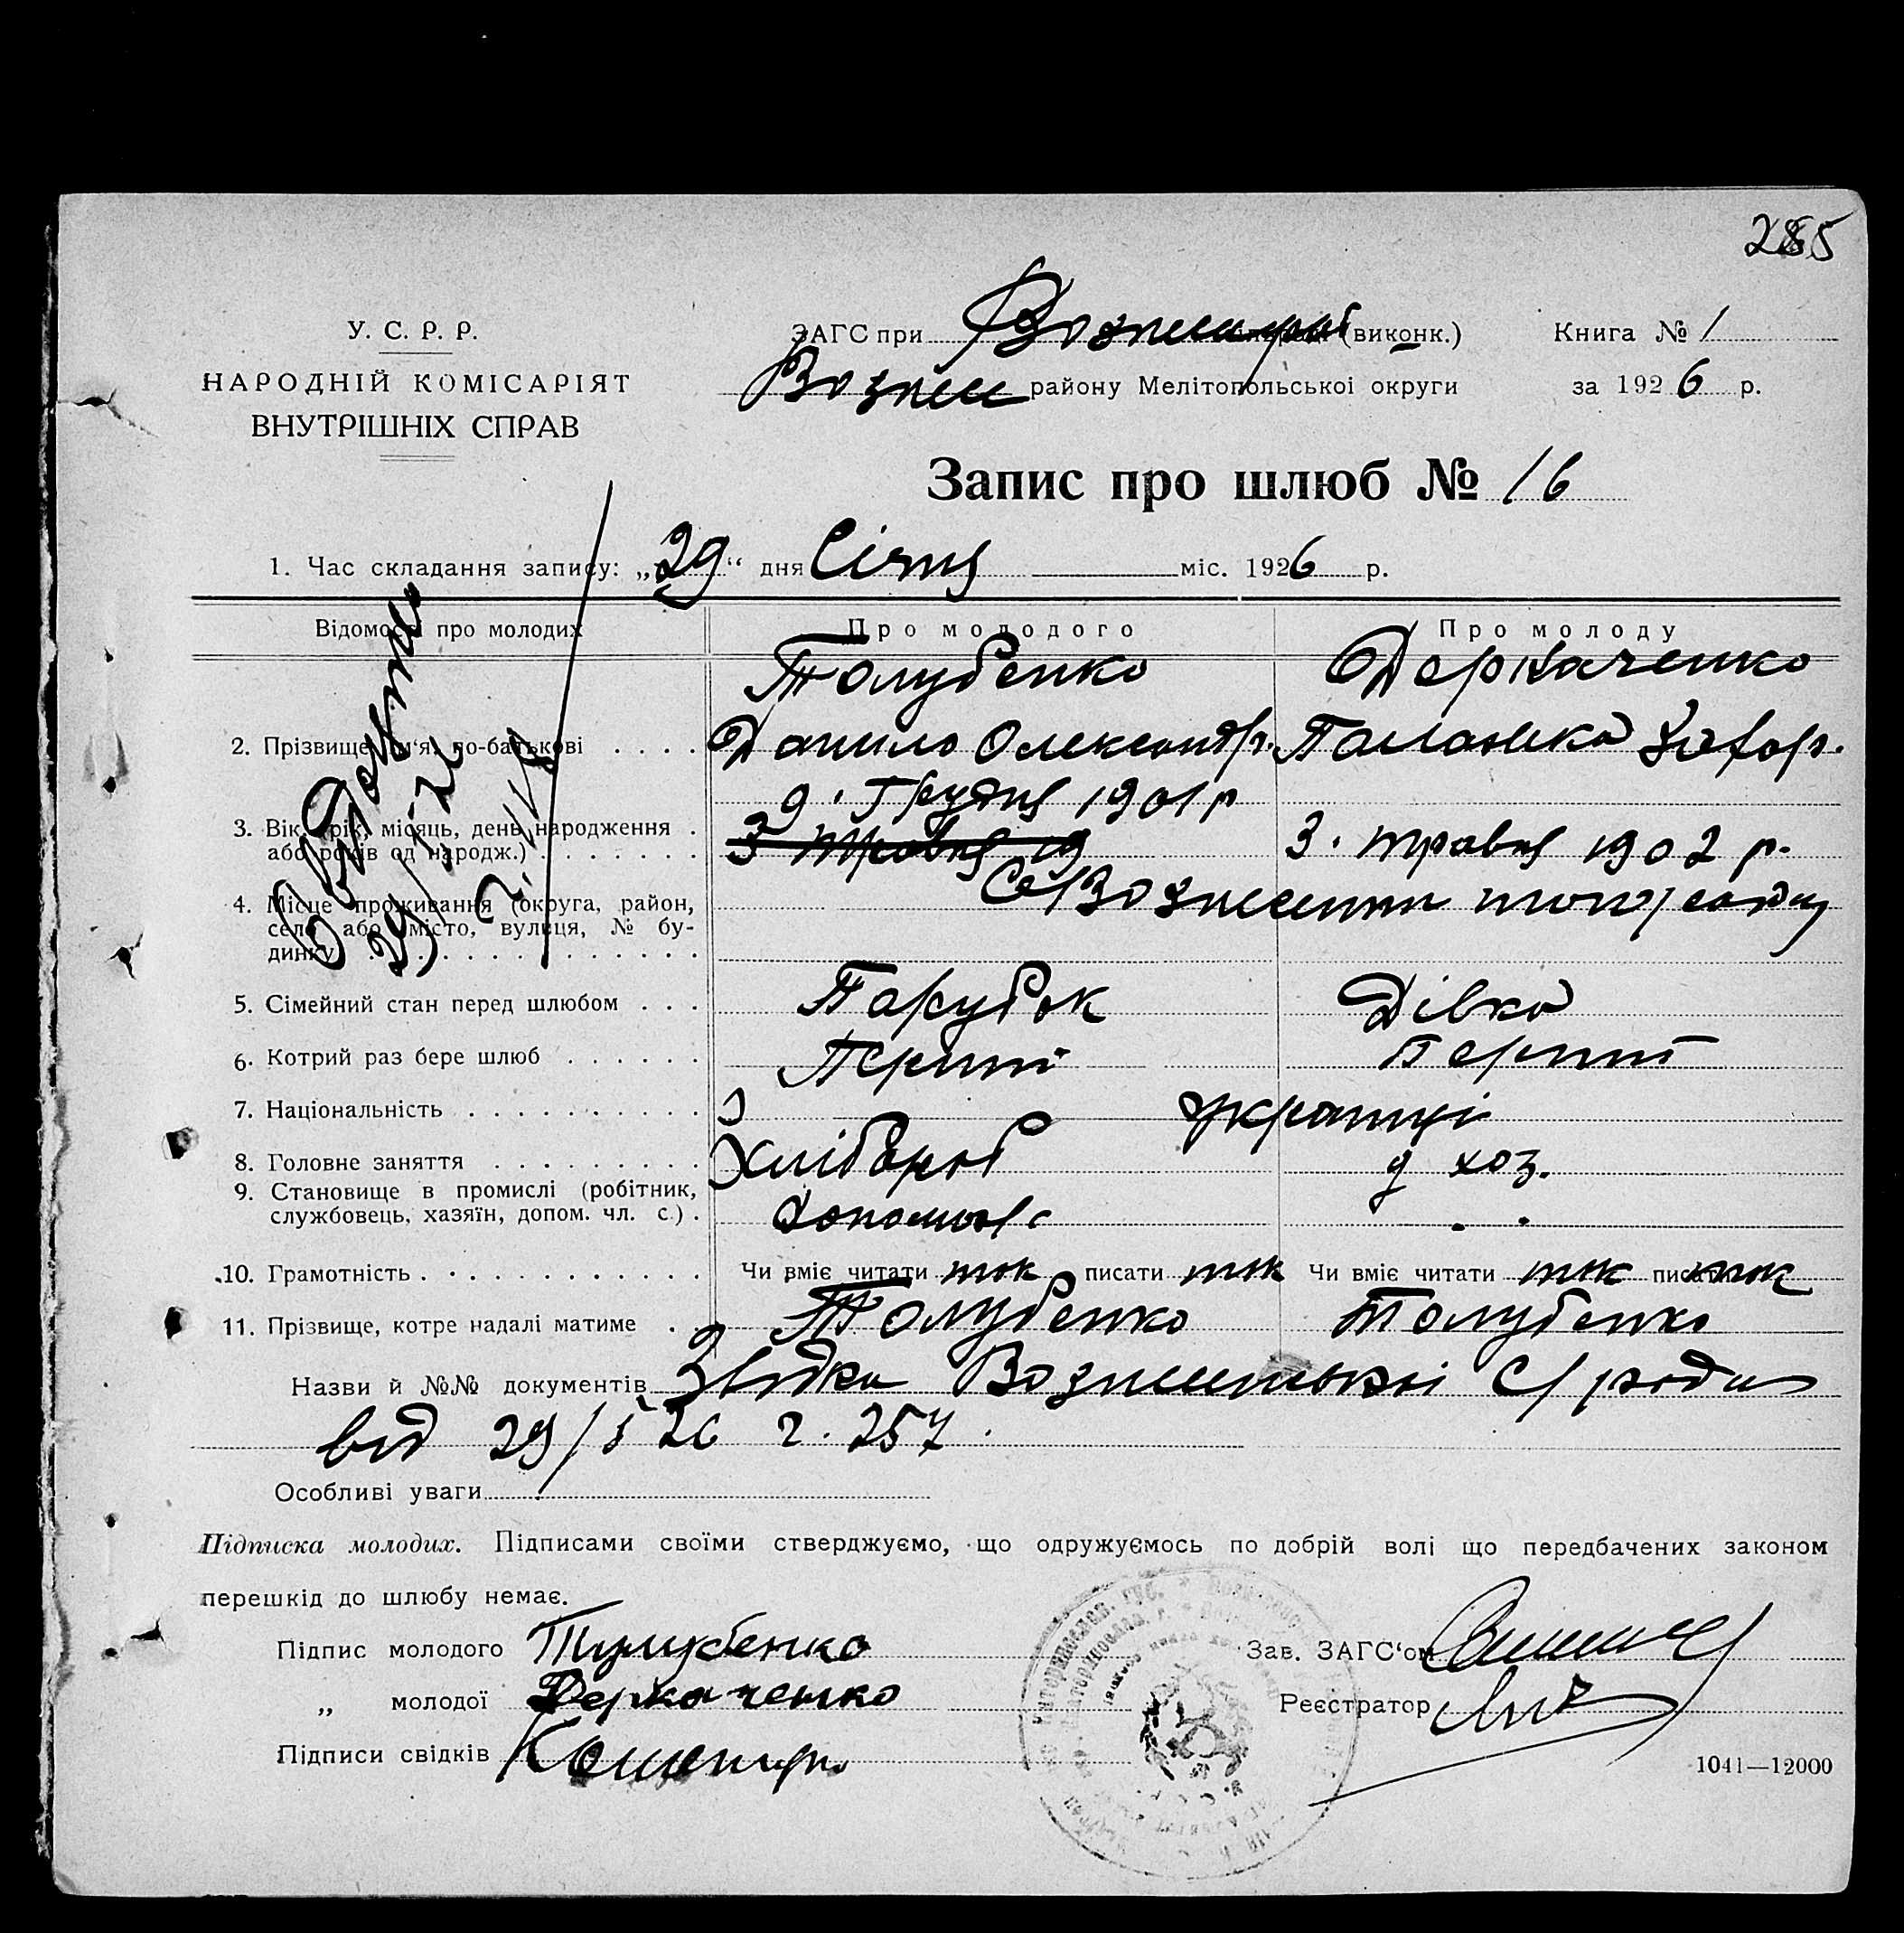 285
У. С. Р. Р.
НАРОДНІЙ КОМІСАРІЯТ
ВНУТРІШНІХ СПРАВ
ЗАГС при (виконк.)
Возне району Мелітопольської округи
Книга № 1
за 1926 р.
Запис про шлюб № 16
1. Час складання запису: „29“ дня Січня міс. 1926 р.
Відомості про молодих Про молодого Про молоду
Голубенко Деркаченко
2. Прізвище, ім‘я, по-батькові . . . . Данило Олександр. Палажка Захар.
9. Грудня 1901 р
3. Вік (рік, місяць, день народження . 3 травня 19 3. травня 1902 р.
або років од народж.) . . . . . . .
4. Місце проживання (округа, район, С Вознесенки
село або місто, вулиця, № бу-
динку) . . . . . . . . . . . . . . .
5. Сімейний стан перед шлюбом . . . Парубок Дівка
6. Котрий раз бере шлюб . . . . . . Перший Перший
7. Національність . . . . . . . . . . українці
8. Головне заняття . . . . . . . . . Хлібороб д хоз.
9. Становище в промислі (робітник,
службовець, хазяїн, допом. чл. с.) . допомог
10. Грамотність . . . . . . . . . . . Чи вміє читати так писати так Чи вміє читати так писати так
11. Прізвище, котре надалі матиме . . Голубенко Голубенко
Назви й №№ документів Звідка Вознесенської с/ради
від 29/I 26 ч. 257.
Особливі уваги
Підписка молодих. Підписами своїми стверджуємо, що одружуємось по добрій волі що передбачених законом
перешкід до шлюбу немає.
Підпис молодого Голубенко Зав. ЗАГС‘ом
„ молодої Деркаченко Реєстратор
Підписи свідків
1041—12000